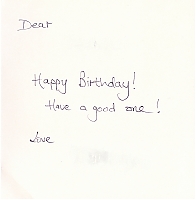 Dear
Happy Birthday!
Have a good one!
Love